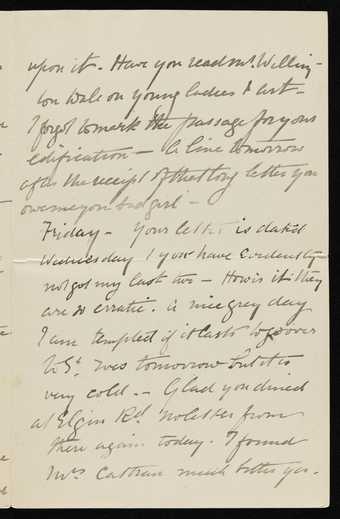 upon it. Have you read Mr. Welling-
ton Wale on young ladies & art -
I forgot to mark the passage for your
edification - A line tomorrow
after the receipt of the long letter you
owe me you bad girl -
Friday - Your letter is dated
Wednesday & you have evidently
not got my last two - How is it they
are so erratic. A nice grey day
I am tempted if it lasts to go over
to St. Ives tomorrow but it is
very cold. - Glad you dined
at Elgin Rd. No letter from
there again today. I found
Mrs Cathran much better yes.